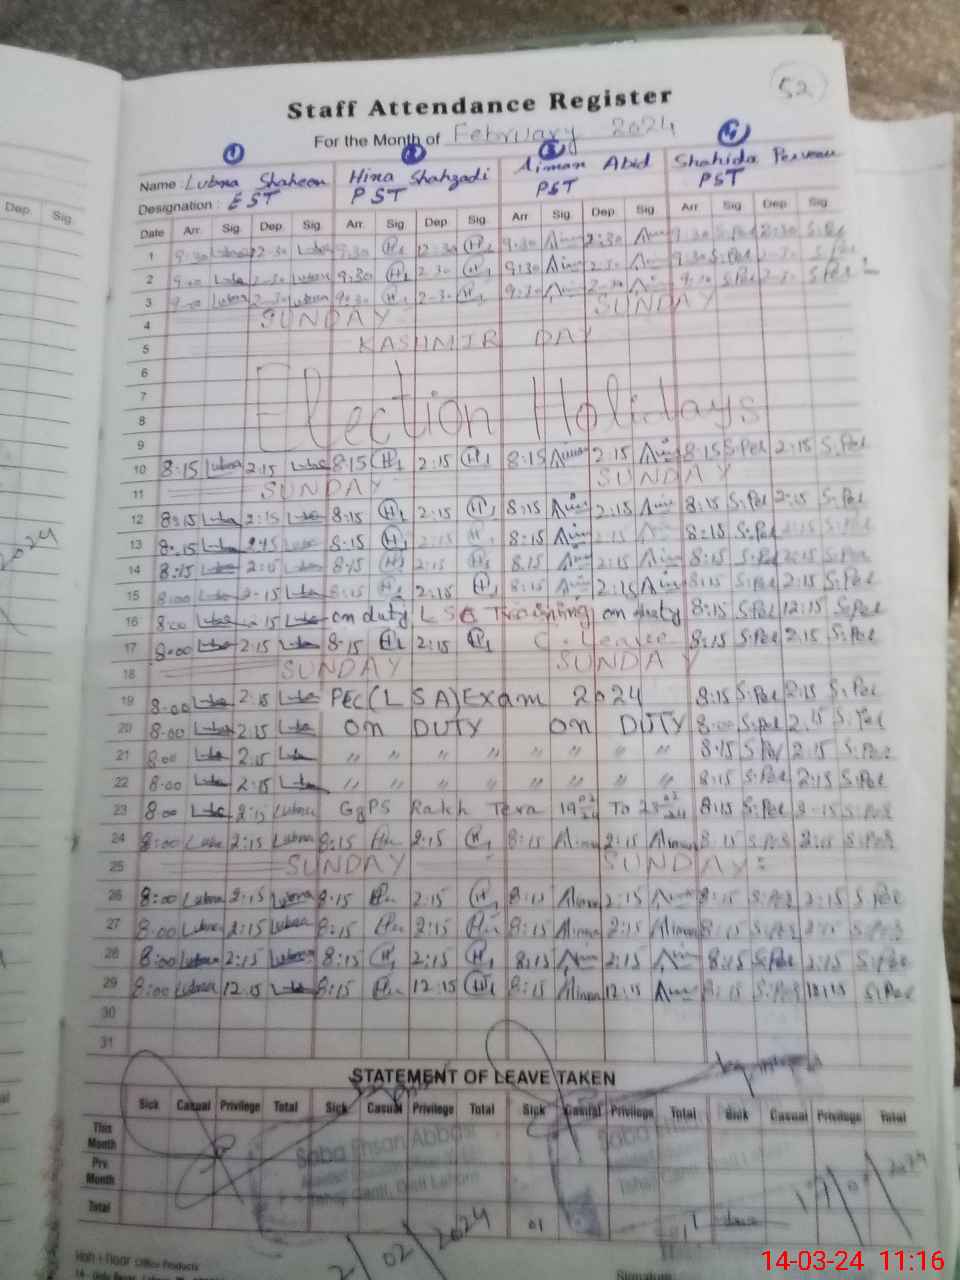 52
Staff Attendance Register
For the Month of February 2024
1 2 3 4
Name: Lubna Shaheen Hina Shahzadi Aiman Abid Shahida Perveen
Designation: EST PST PST PST
Date Arr. Sig. Dep. Sig. Arr. Sig. Dep. Sig. Arr. Sig. Dep. Sig. Arr. Sig. Dep. Sig.
1 9:30 Lubna 2:30 Lubna 9:30 H 12:30 H 9:30 Aim 2:30 Aim 9:30 S.Per 2:30 S.Per
2 9:00 Luba 2:30 Lubna 9:30 H 2:30 H 9:30 Aim 2:30 Aim 9:30 S.Per 2:30 S.Per
3 9:00 Lubna 2:30 Lubna 9:30 H 2:30 H 9:30 Aim 2:30 Aim 9:30 S.Per 2:30 S.Per
4 SUNDAY SUNDAY
5 KASHMIR DAY
6
7
8 Election Holidays
9
10 8:15 Lubna 2:15 Luba 8:15 H 2:15 H 8:15 Aim 2:15 Aim 8:15 S.Per 2:15 S.Per
11 SUNDAY SUNDAY
12 8:15 Luba 2:15 Luba 8:15 H 2:15 H 8:15 Aim 2:15 Aim 8:15 S.Per 2:15 S.Per
13 8:15 Luba 2:15 Luba 8:15 H 2:15 H 8:15 Aim 2:15 Aim 8:15 S.Per 2:15 S.Per
14 8:15 Luba 2:15 Luba 8:15 H 2:15 H 8:15 Aim 2:15 Aim 8:15 S.Per 2:15 S.Per
15 8:00 Luba 2:15 Luba 8:15 H 2:15 H 8:15 Aim 2:15 Aim 8:15 S.Per 2:15 S.Per
16 8:00 Luba 2:15 Luba on duty LSA Training on duty 8:15 S.Per 12:15 S.Per
17 8:00 Luba 2:15 Luba 8:15 H 2:15 H C. Leave 8:15 S.Per 2:15 S.Per
18 SUNDAY SUNDAY
19 8:00 Luba 2:15 Luba PEC (LSA) Exam 2024 8:15 S.Per 2:15 S.Per
20 8:00 Luba 2:15 Luba On DUTY On DUTY 8:00 S.Per 2:15 S.Per
21 8:00 Luba 2:15 Luba " " " " " " " " 8:15 S.Per 2:15 S.Per
22 8:00 Luba 2:15 Luba " " " " " " " " 8:15 S.Per 2:15 S.Per
23 8:00 Luba 2:15 Lubna GgPS Rakh Tera 19 02/24 To 23 02/24 8:15 S.Per 2:15 S.Per
24 8:00 Luba 2:15 Lubna 8:15 Hin 2:15 H 8:15 Aiman 2:15 Aiman 8:15 S.Per 2:15 S.Per
25 SUNDAY SUNDAY
26 8:00 Lubna 2:15 Lubna 8:15 Hin 2:15 H 8:15 Aiman 2:15 Aim 8:15 S.Per 2:15 S.Per
27 8:00 Lubna 2:15 Lubna 8:15 Hin 2:15 Hin 8:15 Aiman 2:15 Aiman 8:15 S.Per 2:15 S.Per
28 8:00 Lubna 2:15 Lubna 8:15 H 2:15 H 8:15 Aim 2:15 Aim 8:15 S.Per 2:15 S.Per
29 8:00 Lubna 12:15 Luba 8:15 Hin 12:15 H 8:15 Aiman 12:15 Aim 8:15 S.Per 12:15 S.Per
30
31
STATEMENT OF LEAVE TAKEN
Sick Casual Privilege Total Sick Casual Privilege Total Sick Casual Privilege Total Sick Casual Privilege Total
This Month
Pre Month
Total 01
Saba Ehsan Abbasi
02 2024
Office Products
Signature
14-03-24 11:16
Dep. Sig.
2024